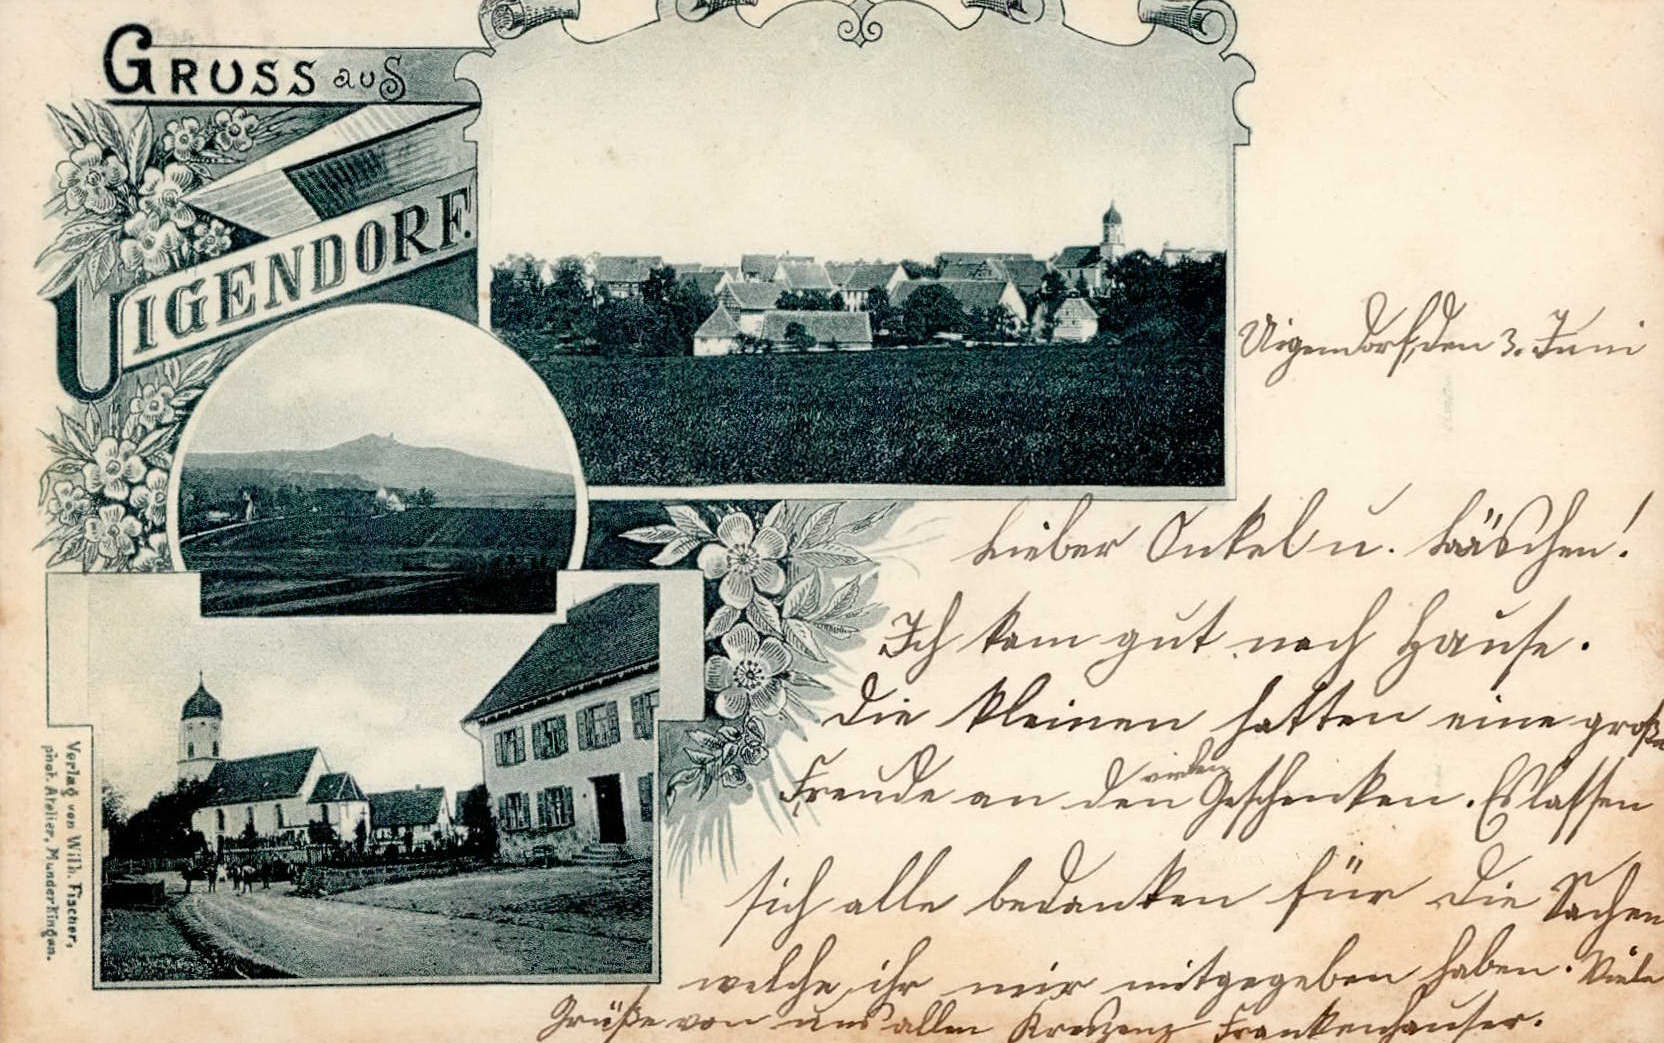 GRUSS aus
UIGENDORF.
Uigendorf, den 3. Juni
Lieber Onkel u. Bääschen!
Ich kam gut nach Hause.
Die kleinen hatten eine große
Freude an den vielen Geschenken. Es lassen
sich alle bedanken für die Sachen
welche ihr mir mitgegeben haben. Viele
Grüße von uns allen Kreszenz Frankenhauser.
Verlag von Wilh. Fischer,
phot. Atelier, Munderkingen.